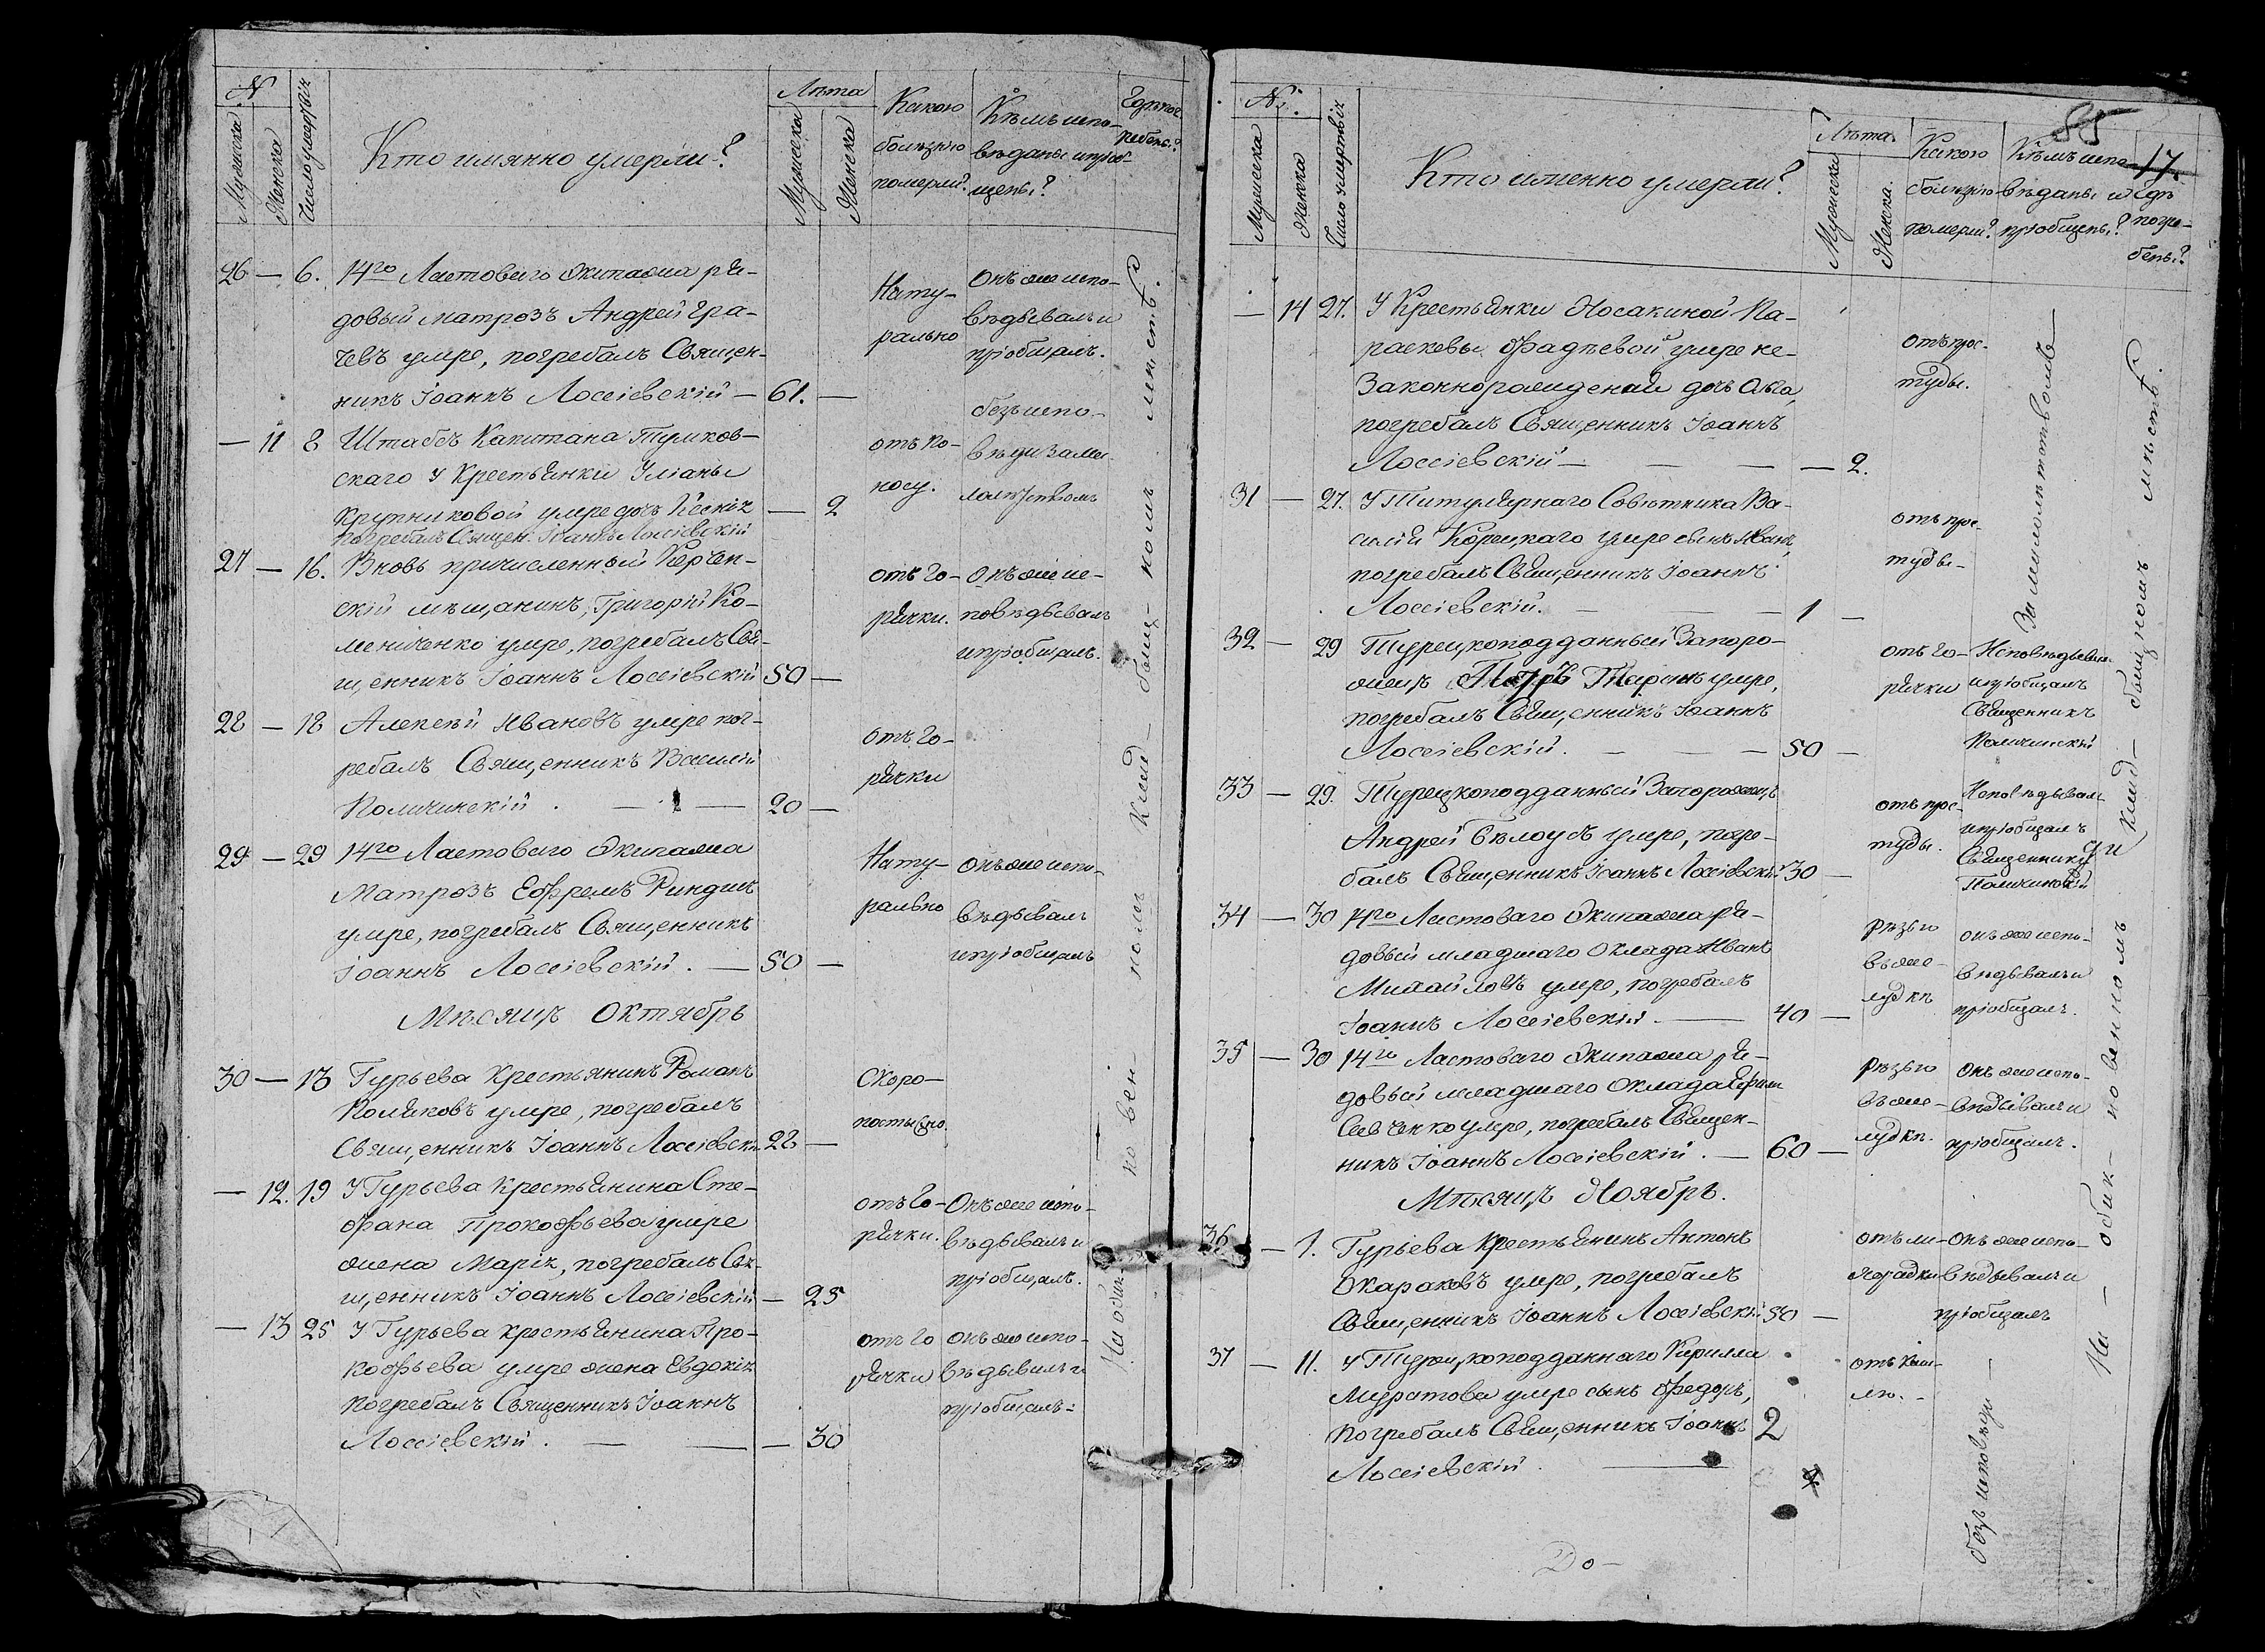 №
Мужеска
Женска
Число умершихъ
Кто имянно умерли?
Лѣта
Мужеска
Женска
Какою
болѣзнію
померли?
Кѣмъ испо-
вѣданы и пріоб-
щены?
Гдѣ пог-
ребены?
26 — 6. 14го Ластоваго Экипажа ря-
довый матрозъ Андрей Гра-
чевъ умре, погребалъ Священ-
никъ Іоаннъ Лосіевскій — 61. —
Нату-
рально
Онъ же испо-
вѣдывалъ и
пріобщалъ.
— 11 8 Штабсъ Капитана Тумков-
скаго у Крестьянки Ульяны
Крупниковой умре дочь Ксенія — 2
погребалъ Священ. Іоаннъ Лосіевскій
отъ по-
носу.
безъ испо-
вѣди за ма-
лолѣтствомъ
27 — 16. Вновь причисленный Керчен-
скій мѣщанинъ, Григорій Ко-
мениченко умре, погребалъ Свя-
щенникъ Іоаннъ Лосіевскій 50 —
отъ го-
рячки.
Онъ же ис-
повѣдывалъ
и пріобщалъ.
28 — 18 Алексѣй Ивановъ умре пог-
ребалъ Священникъ Василій
Поличинскій . — — 20 —
отъ го-
рячки
29 — 29 14го Ластоваго Экипажа
Матрозъ Ефремъ Риндинъ
умре, погребалъ Священникъ
Іоаннъ Лосіевскій. — 50 —
Нату-
рально
Онъ же испо-
вѣдывалъ
и пріобщалъ
Мѣсяцъ Октябрь
30 — 13 Гурьева Крестьянинъ Романъ
Поляковъ умре, погребалъ
Священникъ Іоаннъ Лосіевскій 22 —
Скоро-
постыжно.
— 12. 19 У Гурьева Крестьянина Сте-
фана Прокофьева умре
жена Марія, погребалъ Свя-
щенникъ Іоаннъ Лосіевскій — 25
отъ го-
рячки.
Онъ же испо-
вѣдывалъ и
пріобщалъ.
— 13 25 У Гурьева крестьянина Про-
кофьева умре жена Евдокія
погребалъ Священникъ Іоаннъ
Лосіевскій. — — — 30
отъ го
рячки
онъ же испо-
вѣдывалъ и
пріобщалъ.
На обык-
новен-
номъ клад-
бищ-
номъ мѣстѣ.
85
17.
№.
Мужеска
Женска
Число умертвія
Кто именно умерли?
Лѣта
Мужеска
Женска.
Какою
болѣзнію
померли?
Кѣмъ испо-
вѣданы и
пріобщены?
Гдѣ
погре-
бены?
— 14 27. У Крестьянки Носакиной Па-
расковы Фадѣевой умре не-
Законнорожденная дочь Ольга,
погребалъ Священникъ Іоаннъ
Лосіевскій — — — — 2.
отъ прос-
туды.
31 — 27. У Титулярнаго Совѣтника Ва-
силія Корецкаго умре сынъ Иванъ,
погребалъ Священникъ Іоаннъ
Лосіевскій. — — 1 —
отъ прос-
туды —
За малолѣтствомъ —
32 — 29 Турецкоподданный Запоро-
жецъ Петръ Таранъ умре,
погребалъ Священникъ Іоаннъ
Лосіевскій. — — — 50 —
отъ го-
рячки
Исповѣдывалъ
и пріобщалъ
Священникъ
Поличинскій
33 — 29. Турецкоподданный Запорожецъ
Андрей Бѣлоусъ умре, погре-
балъ Священникъ Іоаннъ Лосіевскій 30 —
отъ прос-
туды.
Исповѣдывалъ
и пріобщалъ
Священникъ
Поличинскій
34 — 30 14го Ластоваго Экипажа ря-
довый младшаго Оклада Иванъ
Михайловъ умре, погребалъ
Іоаннъ Лосіевскій. — 40 —
рѣзью
въ же-
лудкѣ
онъ же испо-
вѣдывалъ и
пріобщалъ.
35 — 30 14го Ластоваго Экипажа ря-
довый младшаго Оклада Ефимъ
Савченко умре, погребалъ Священ-
никъ Іоаннъ Лосіевскій. — 60 —
рѣзью
въ же-
лудкѣ.
Онъ же испо-
вѣдывалъ и
пріобщалъ.
Мѣсяцъ Ноябрь.
36 — 1. Гурьева Крестьянинъ Антонъ
Окараковъ умре, погребалъ
Священникъ Іоаннъ Лосіевскій 50 —
отъ ли-
хорадки
Онъ же испо-
вѣдывалъ и
пріобщалъ
37 — 11. У Турецкоподданнаго Кирилла
Муратова умре сынъ Федоръ,
погребалъ Священникъ Іоаннъ 2
Лосіевскій. —
отъ каш-
лю. —
безъ исповѣди —
На — обык-
новенномъ
клад-
бищномъ мѣстѣ.
До —